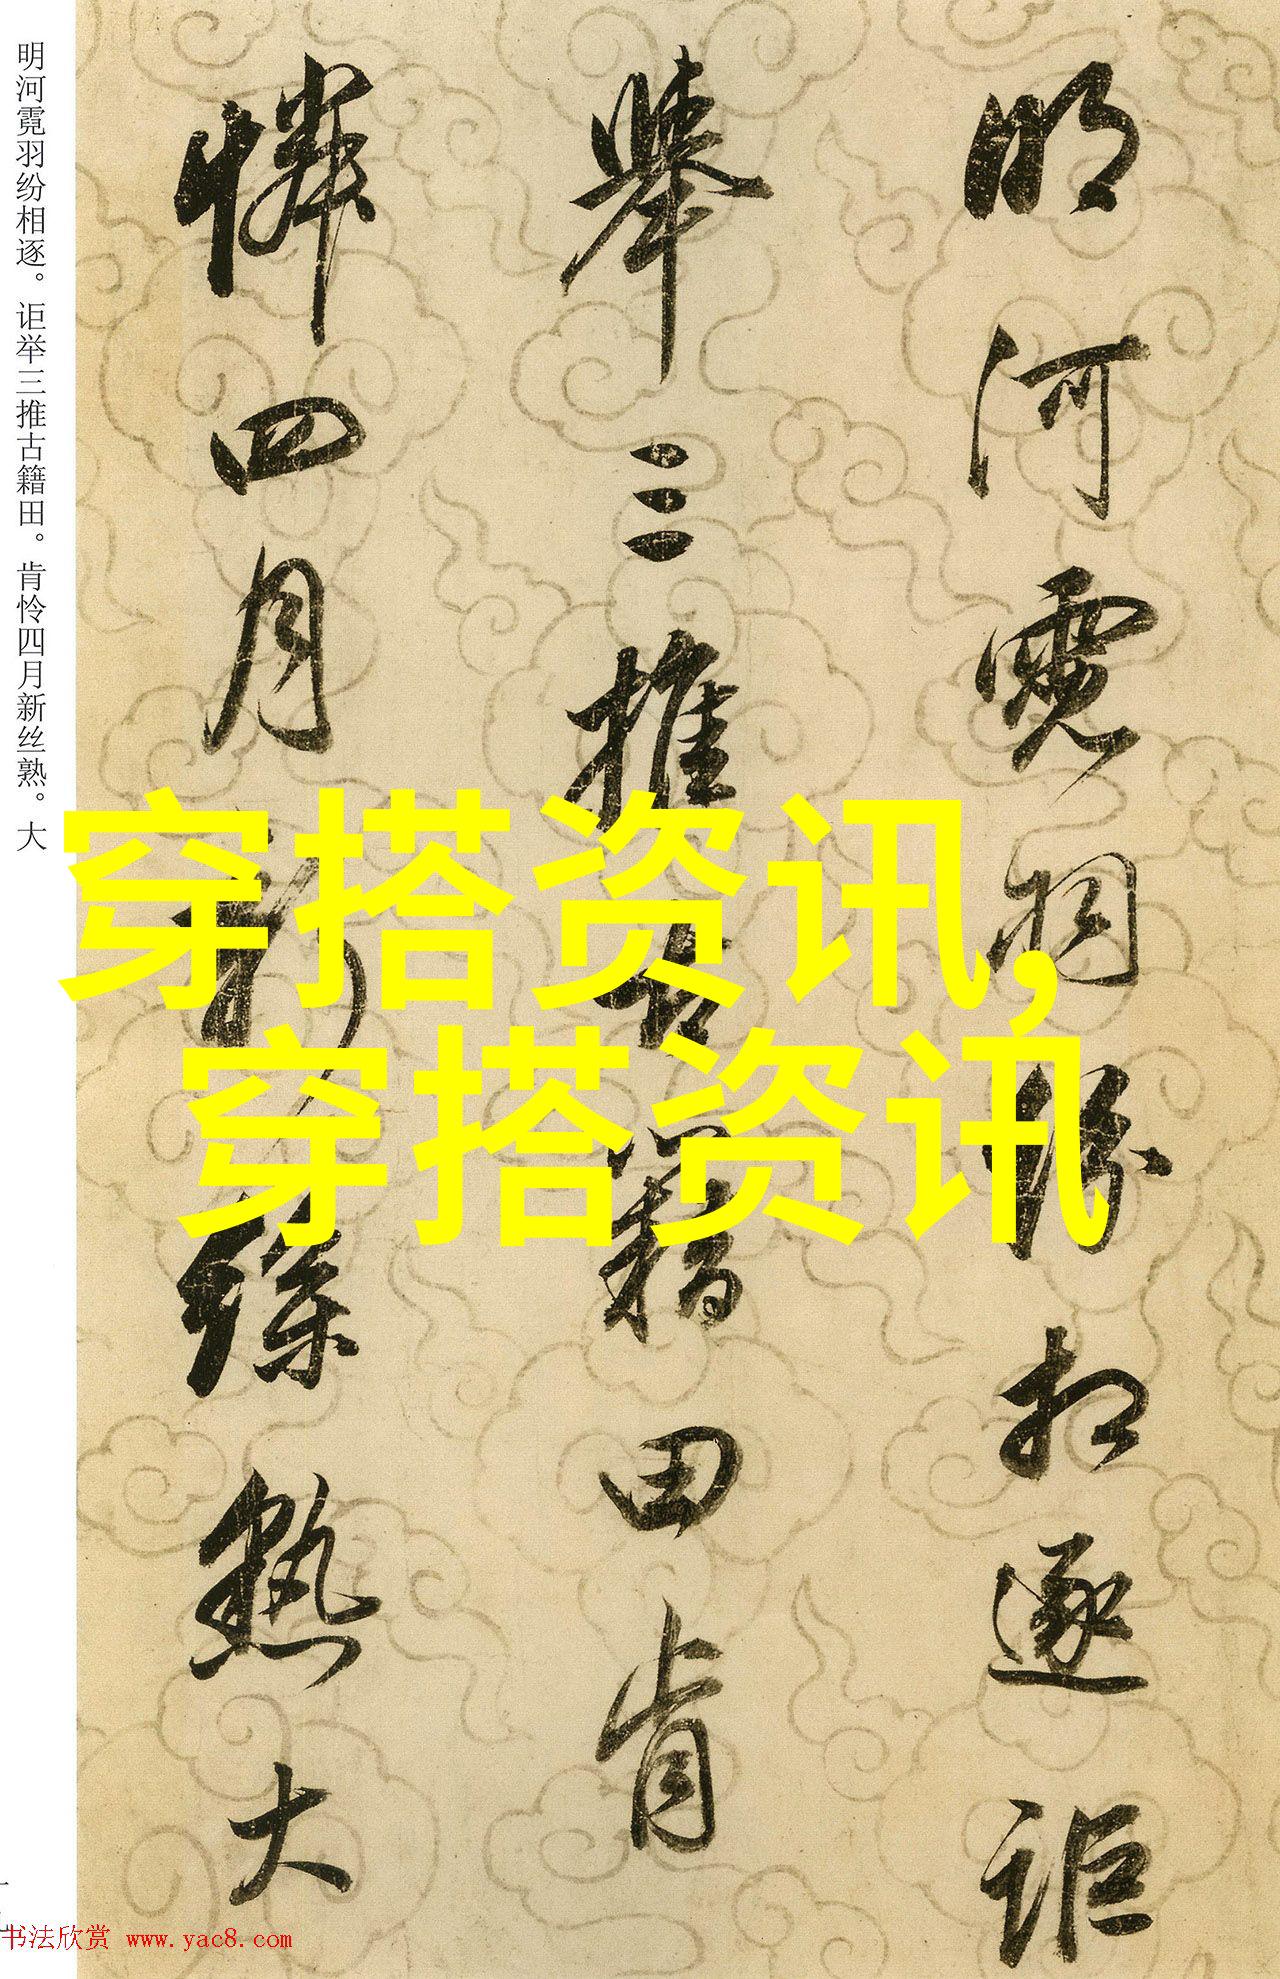 明河霓羽纷相逐。讵举三推古籍田。肯怜四月新丝熟。大
明河霓羽纷相逐讵
舉三推古籍田肯
憐四月新絲熟大
穿搭资讯,
穿搭资讯
书法欣赏 www.yac8.com